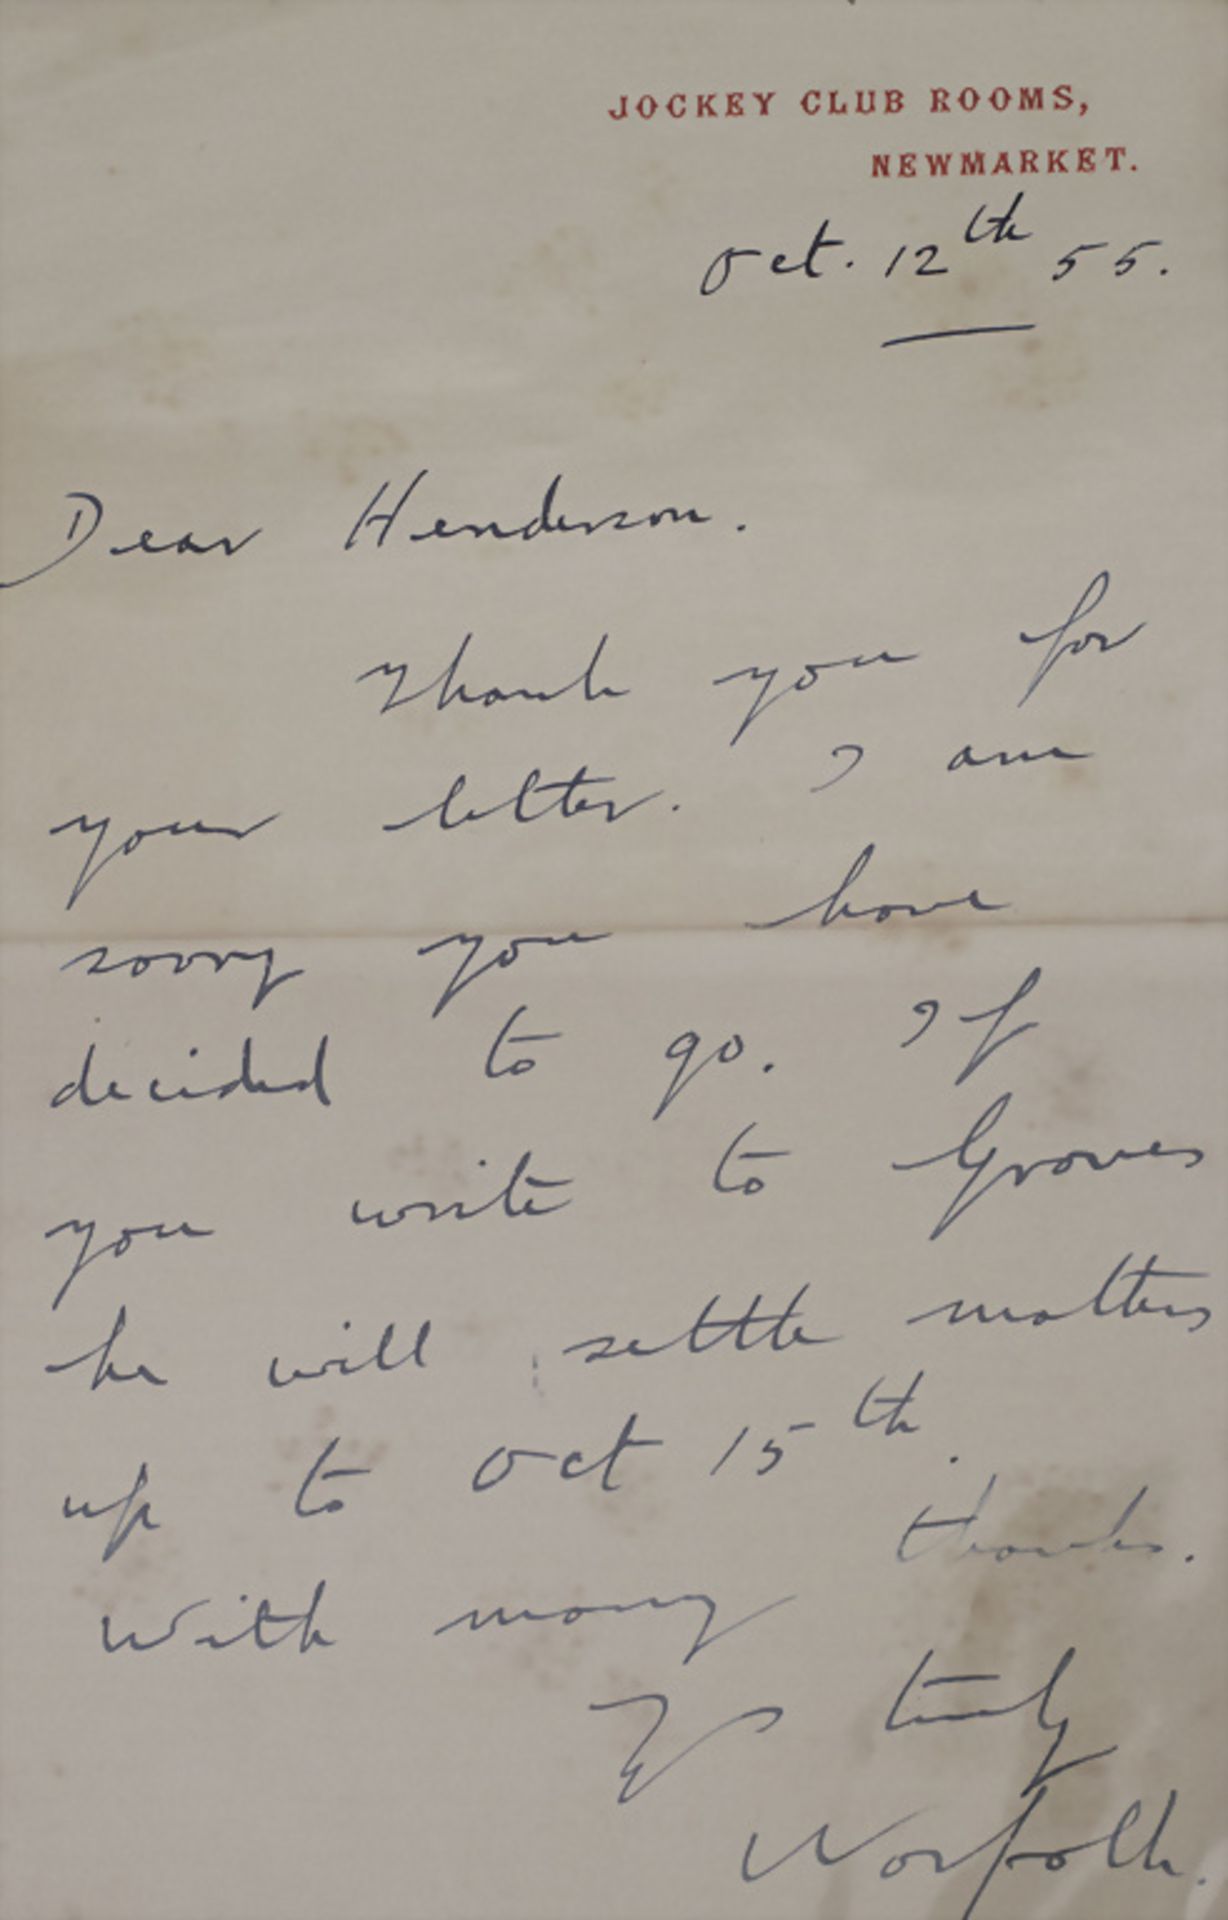 JOCKEY CLUB ROOMS,
NEWMARKET.
Oct. 12th 55.
Dear Henderson.
Thank you for
your letter. I am
sorry you have
decided to go. If
you write to Groves
he will settle matters
up to Oct 15th.
With many thanks.
Ys truly
Norfolk.